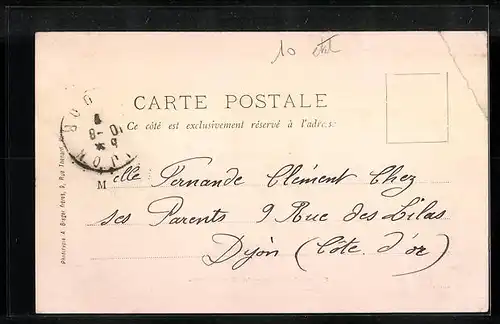 10
CARTE POSTALE
Ce côté est exclusivement réservé à l'adresse
Melle Fernande Clément Chez
ses Parents 9 Rue des Lilas
Dijon (Côte d'or)